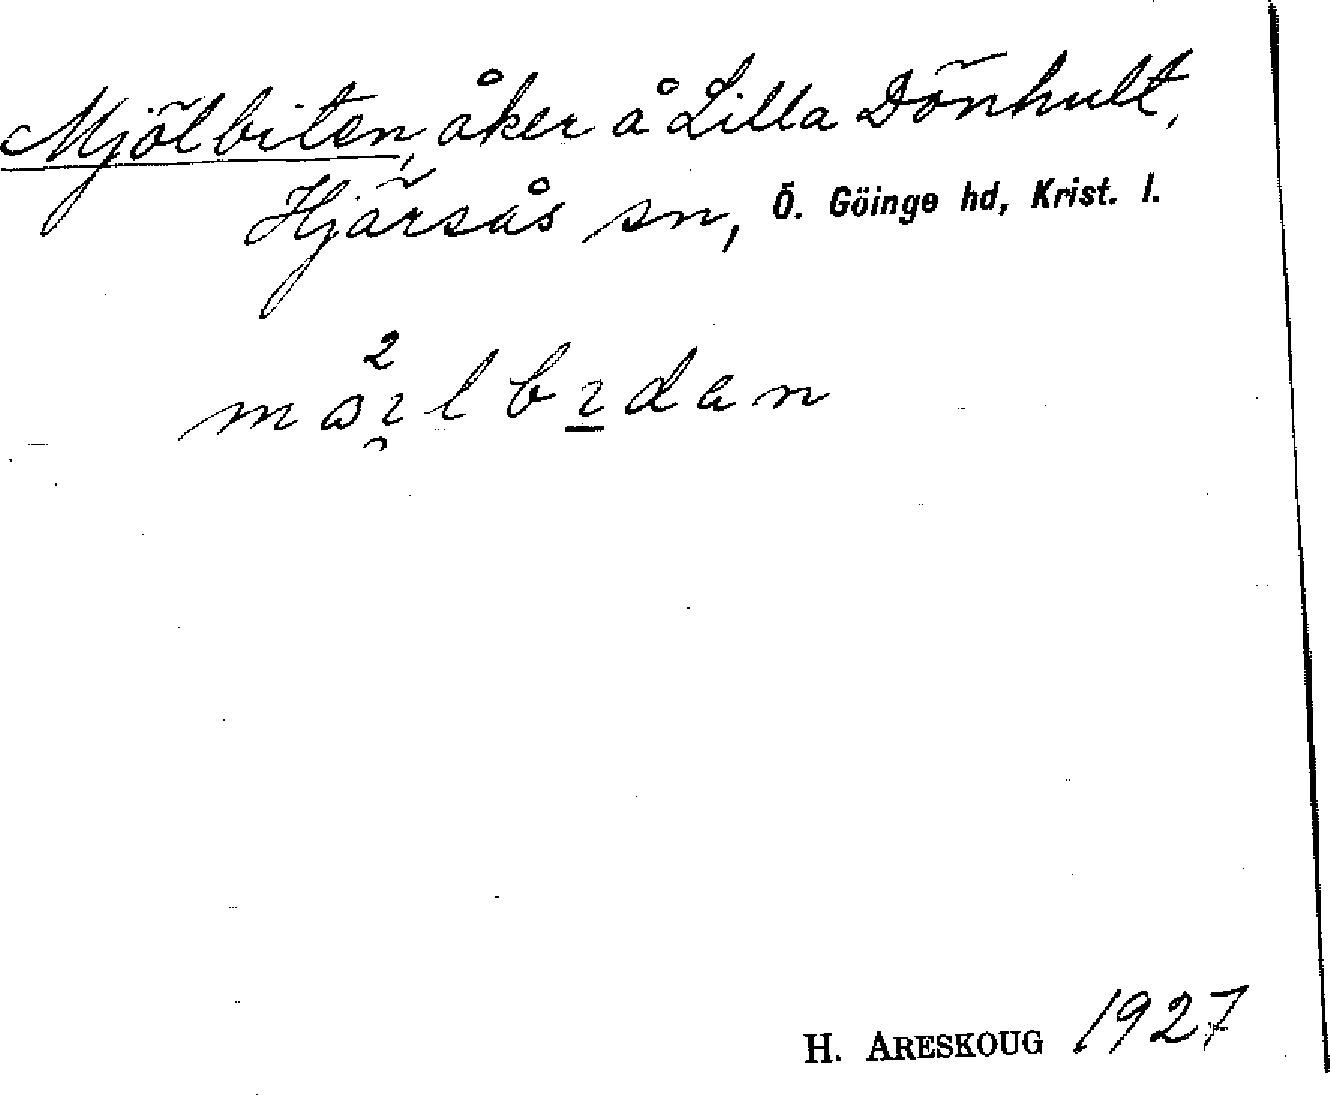 Mjölbiten, åker å Lilla Dönhult,
Hjärsås sn, Ö. Göinge hd, Krist. l.
H. ARESKOUG 1927